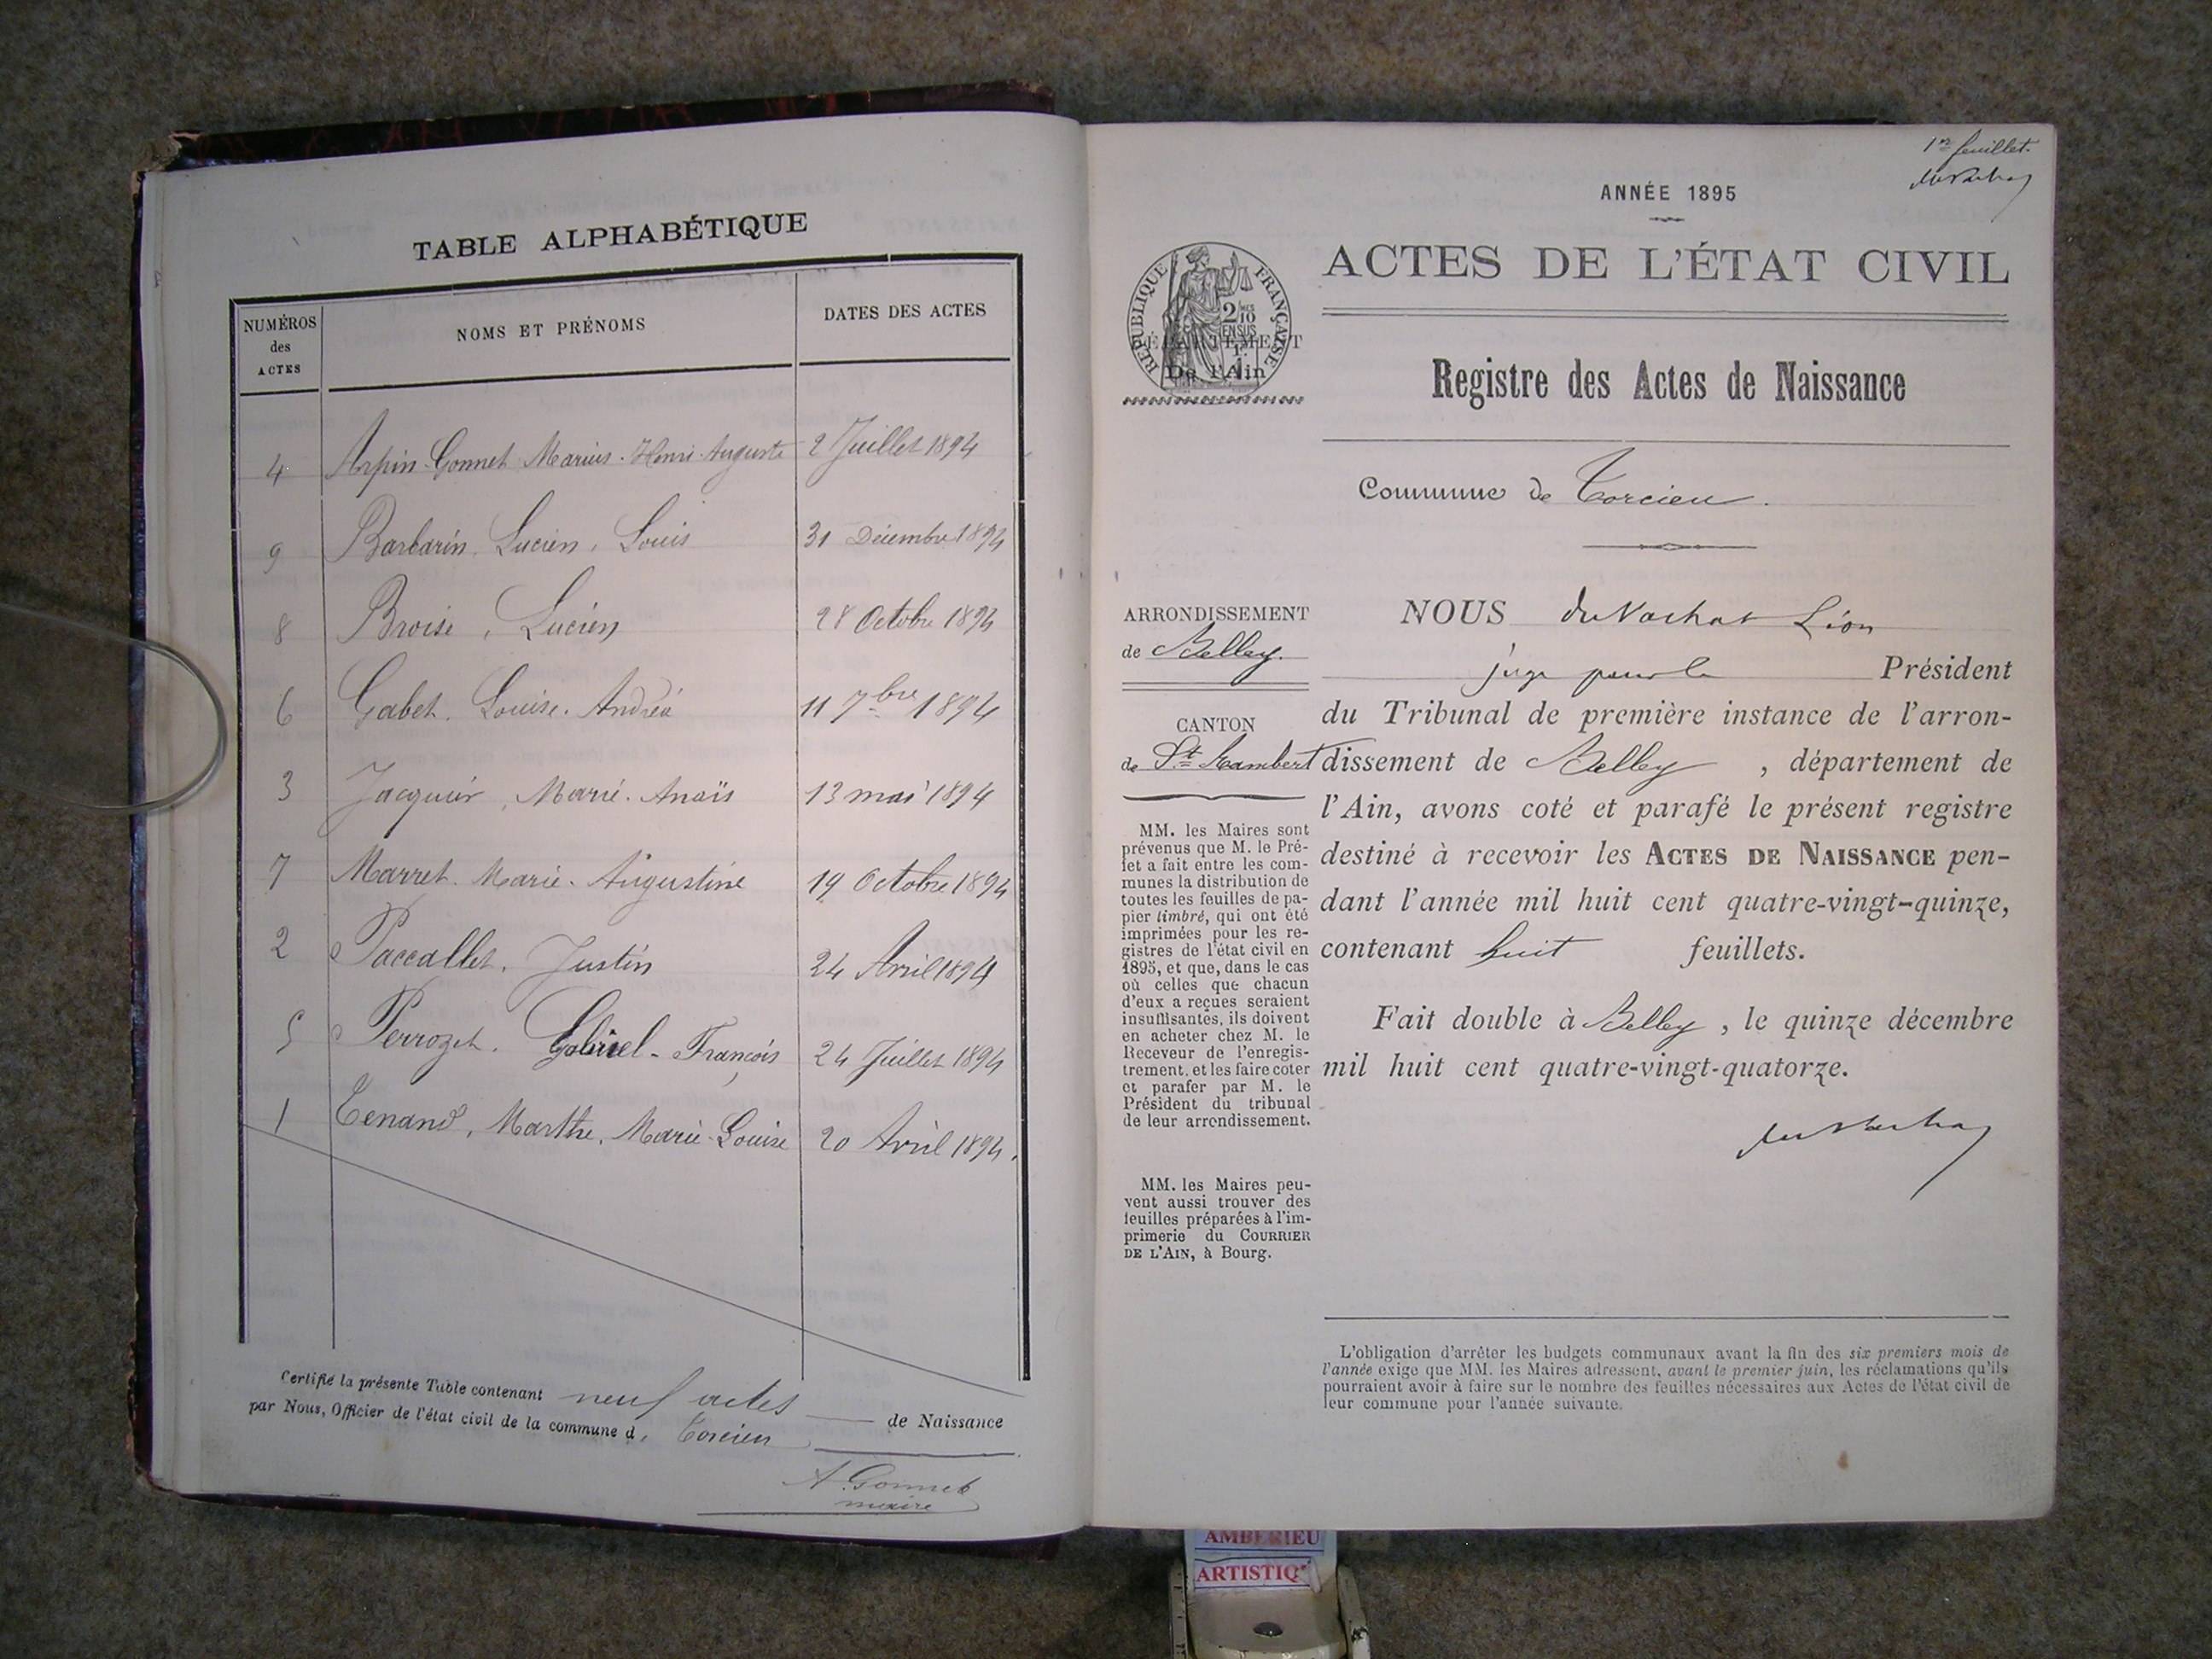 TABLE ALPHABÉTIQUE
NUMÉROS des ACTES
NOMS ET PRÉNOMS
DATES DES ACTES
4 Arpin-Gonnet Marius-Henri-Auguste 2 Juillet 1894
9 Barbarin Lucien, Louis 31 Décembre 1894
8 Broise, Lucien 28 Octobre 1894
6 Gabet. Louise. Andréa 11 7bre 1894
3 Jacquier, Marie. Anaïs 13 mai 1894
7 Marret. Marie. Augustine 19 Octobre 1894
2 Paccallet. Justin 24 Avril 1894
5 Perrozet. Gabriel-François 24 Juillet 1894
1 Tenand, Marthe, Marie-Louise 20 Avril 1894.
Certifié la présente Table contenant neuf actes de Naissance
par Nous, Officier de l'état civil de la commune de Torcieu
A. Gonnet
maire
1er feuillet.
ANNÉE 1895
ACTES DE L'ÉTAT CIVIL
RÉPUBLIQUE FRANÇAISE
2/10 EN SUS
DÉPARTEMENT
De l'Ain
Registre des Actes de Naissance
Commune de Torcieu.
ARRONDISSEMENT
de Belley.
CANTON
de St Rambert
MM. les Maires sont
prévenus que M. le Pré-
fet a fait entre les com-
munes la distribution de
toutes les feuilles de pa-
pier timbré, qui ont été
imprimées pour les re-
gistres de l'état civil en
1895, et que, dans le cas
où celles que chacun
d'eux a reçues seraient
insuffisantes, ils doivent
en acheter chez M. le
Receveur de l'enregis-
trement, et les faire coter
et parafer par M. le
Président du tribunal
de leur arrondissement.
MM. les Maires peu-
vent aussi trouver des
feuilles préparées à l'im-
primerie du COURRIER
DE L'AIN, à Bourg.
NOUS du Vachat Léon
juge pour le Président
du Tribunal de première instance de l'arron-
dissement de Belley, département de
l'Ain, avons coté et parafé le présent registre
destiné à recevoir les ACTES DE NAISSANCE pen-
dant l'année mil huit cent quatre-vingt-quinze,
contenant huit feuillets.
Fait double à Belley, le quinze décembre
mil huit cent quatre-vingt-quatorze.
du Vachat
L'obligation d'arrêter les budgets communaux avant la fin des six premiers mois de
l'année exige que MM. les Maires adressent, avant le premier juin, les réclamations qu'ils
pourraient avoir à faire sur le nombre des feuilles nécessaires aux Actes de l'état civil de
leur commune pour l'année suivante.
AMBERIEU
ARTISTIQ